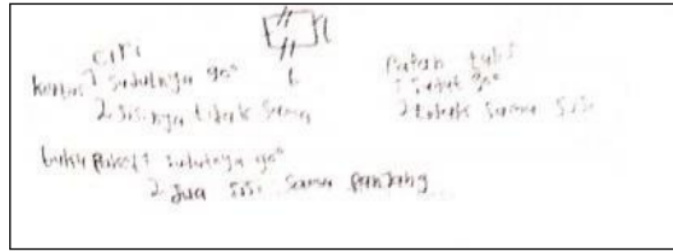 Ciri
kertas 1 sudutnya 90°
2. sisinya tidak sama
Papan tulis
1 sudut 90°
2 tidak sama sisi
buku paket 1 sudutnya 90°
2. dua sisi sama panjang